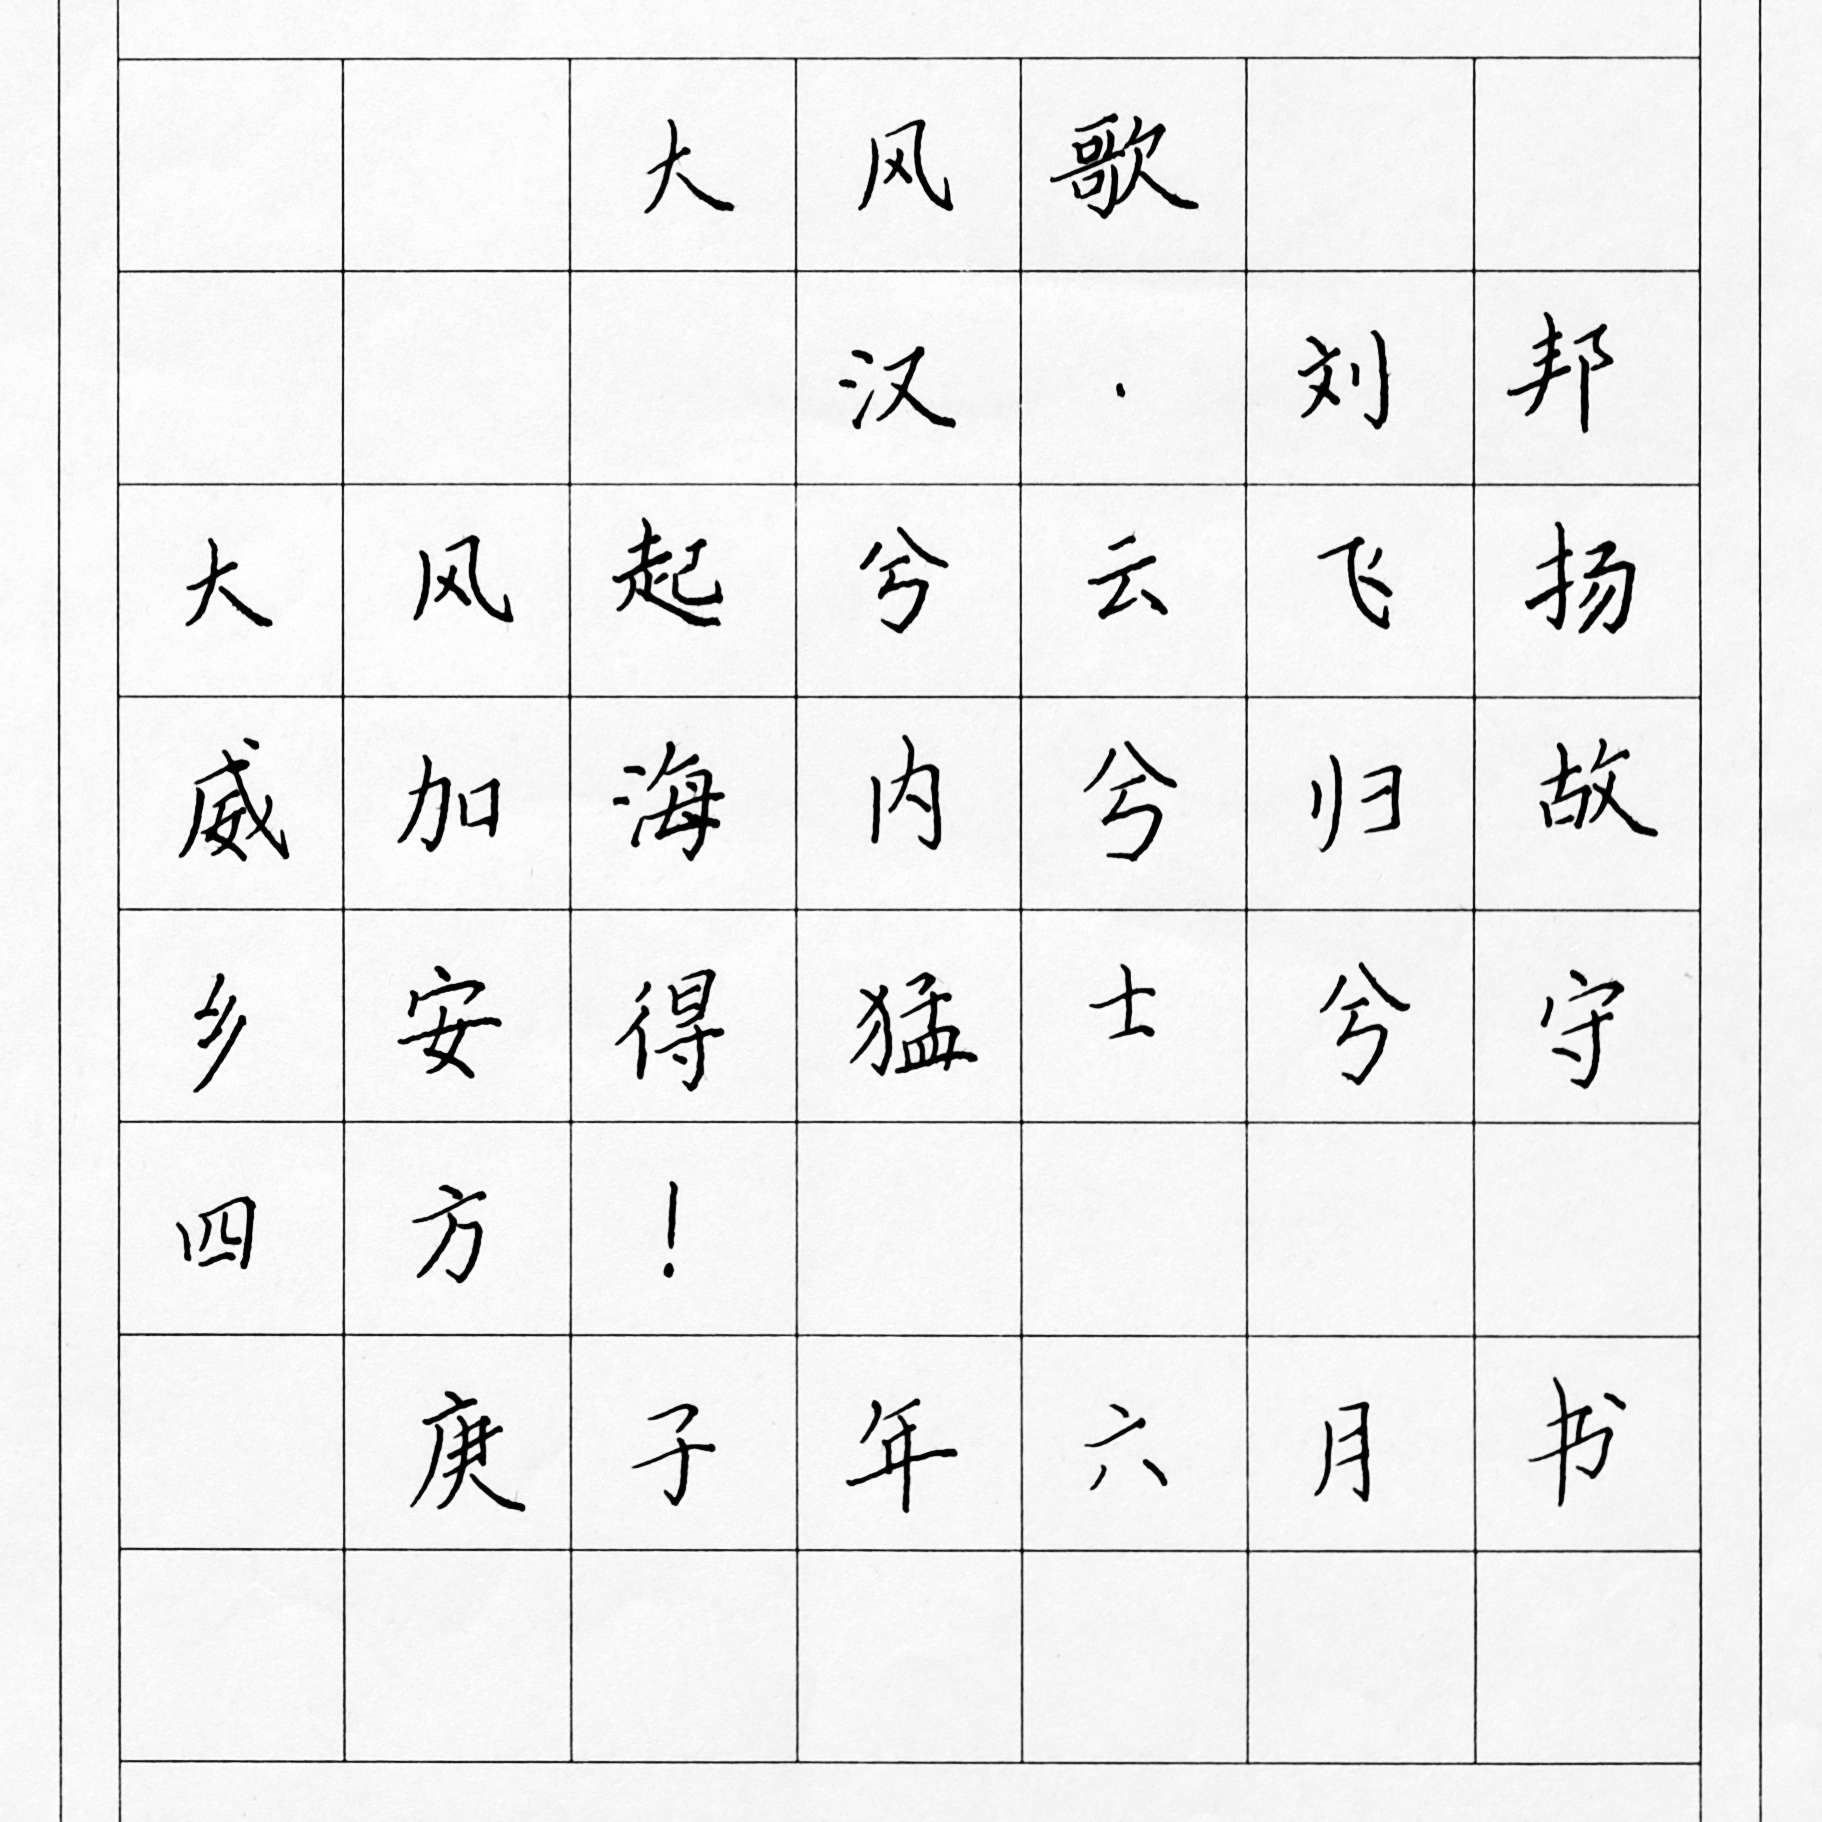 大风歌
汉·刘邦
大风起兮云飞扬
威加海内兮归故
乡安得猛士兮守
四方!
庚子年六月书